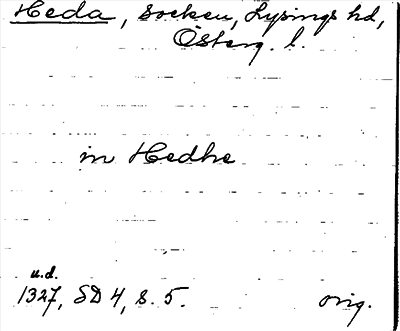 Heda, socken, Lysings hd,
Österg. l.
in Hedhe
u.d.
1327, SD 4, s. 5. orig.